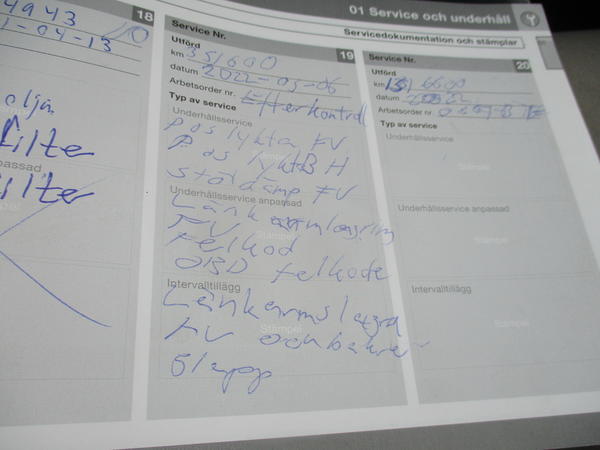 01 Service och underhåll
Servicedokumentation och stämplar
4943 18
1-04-13
olja
filter
passad
filter
Service Nr. 19
Utförd
km 351600
datum 2022-05-06
Arbetsorder nr. Efterkontroll
Typ av service
Underhållsservice
Pos lykta FV
Pos lykt BH
Stötdämp FV
Underhållsservice anpassad
Länkarmslagring
FV
Felkod
OBD felkode
Intervalltillägg
Länkarmslagra
FV och bakre
Stämpel
Glapp
Service Nr. 20
Utförd
km
datum
Arbetsorder nr.
Typ av service
Underhållsservice
Underhållsservice anpassad
Stämpel
Intervalltillägg
Stämpel